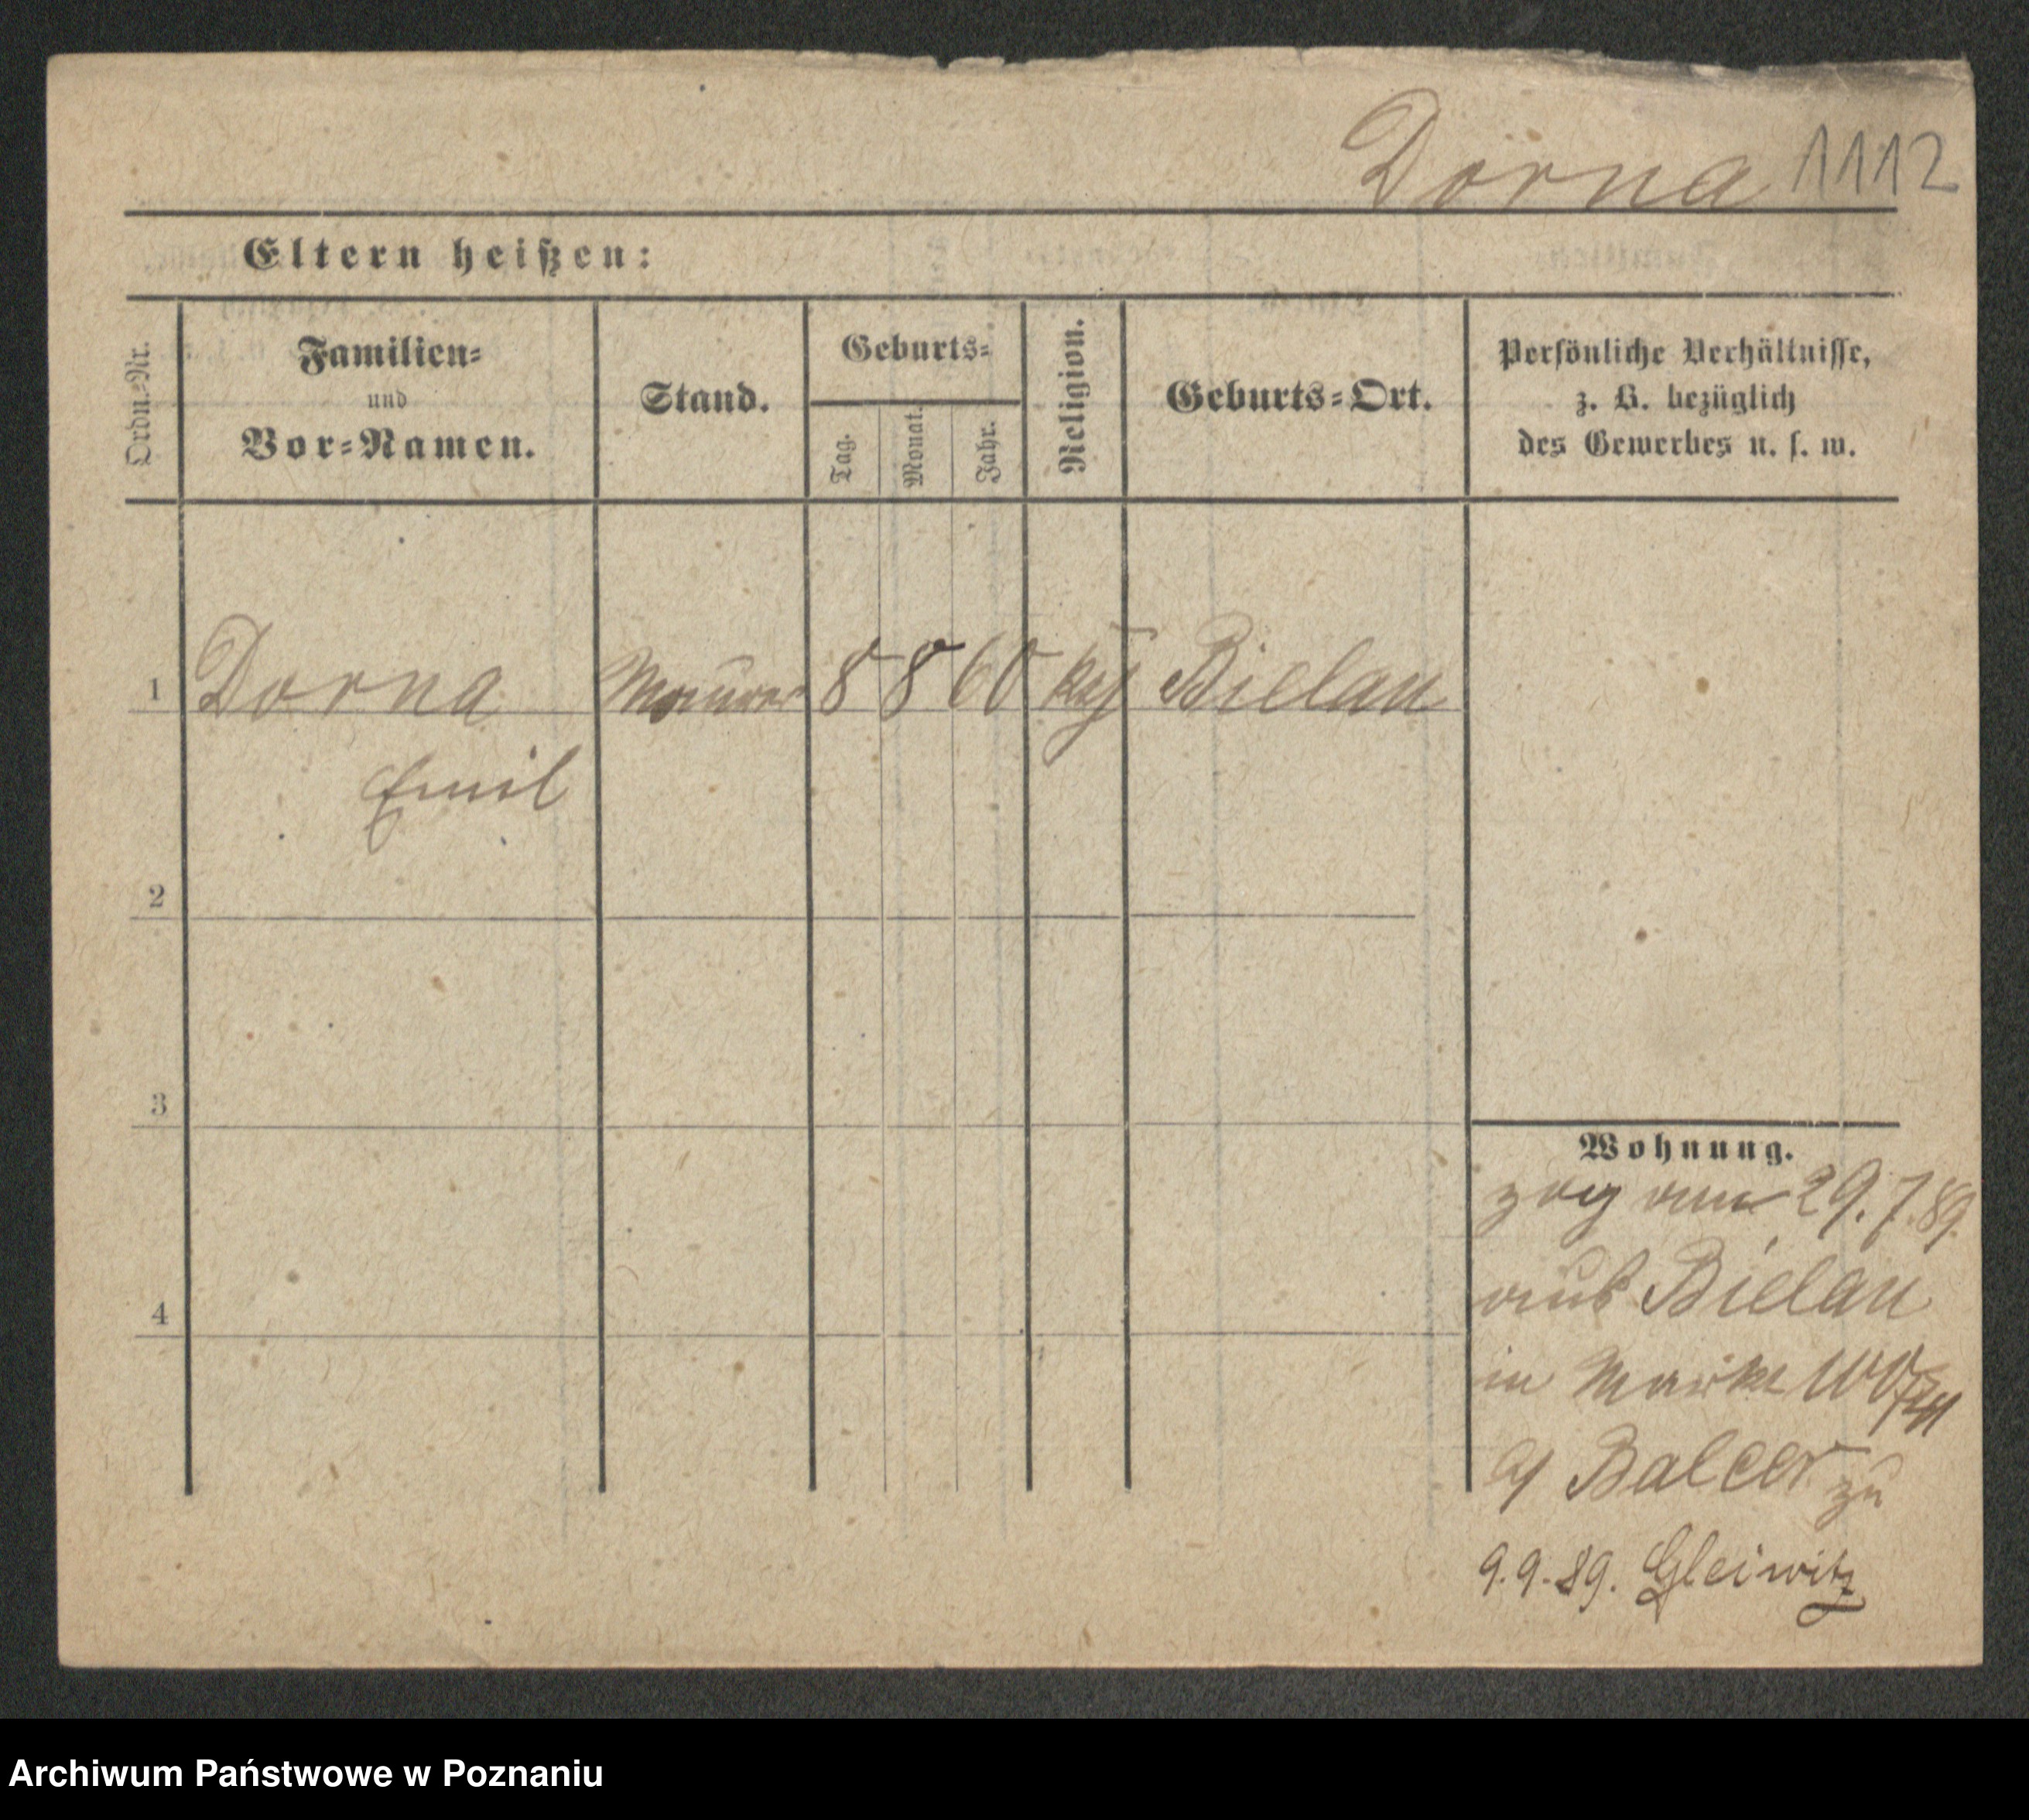 Dorna 1112
Eltern heißen:
Ordn.-Nr.
Familien-
und
Vor-Namen.
Stand.
Geburts-
Tag.
Monat.
Jahr.
Religion.
Geburts-Ort.
Persönliche Verhältnisse,
z. B. bezüglich
des Gewerbes u. s. w.
1 Dorna Maurer 8 8 60 Bielau
Emil
2
3
4
Wohnung.
zog am 29.7.89.
aus Bielau
in
Balcer zu
9.9.89. Gleiwitz
Archiwum Państwowe w Poznaniu